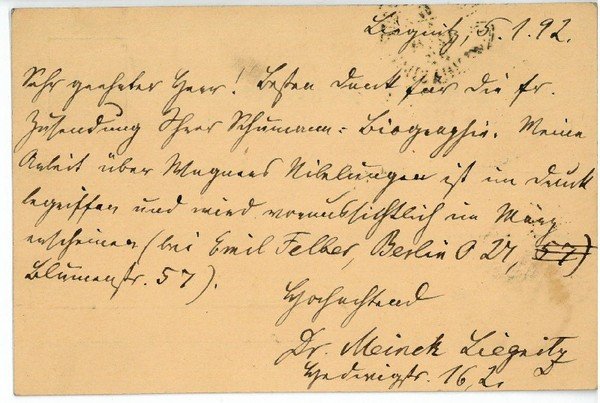 Liegnitz, 5.1.92.
Sehr geehrter Herr! Besten Dank für die fr.
Zusendung Ihrer Schumann-Biographie. Meine
Arbeit über Wagners Nibelungen ist im Druck
begriffen und wird voraussichtlich im März
erscheinen (bei Emil Felber, Berlin O 27, 57)
Blumenstr. 57).
Hochachtend
Dr. Meinck Liegnitz
Hedwigstr. 16, 2.